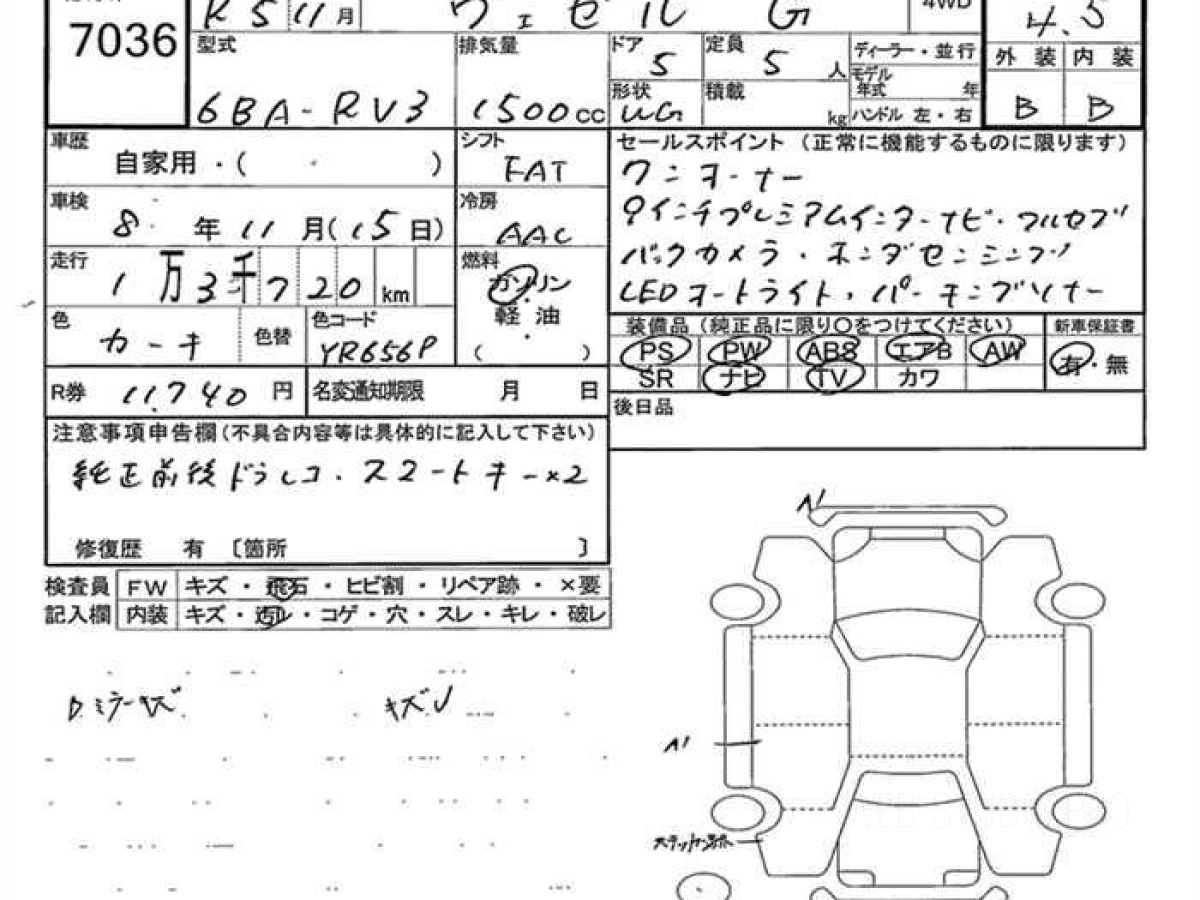 7036
R5 11月
ヴェゼル G
4WD
4.5
型式
6BA-RV3
排気量
1500cc
ドア
5
定員
5人
ディーラー・並行
モデル年式 年
外装 内装
B B
形状
WG
積載
kg
ハンドル 左・右
車歴
自家用・( ・ )
シフト
FAT
セールスポイント (正常に機能するものに限ります)
ワンオーナー
9インチプレミアムインターナビ・フルセグ
バックカメラ・ホンダセンシング
LEDオートライト・パーキングソナー
車検
8年11月(15日)
冷房
AAC
走行
1万3千720km
燃料
ガソリン
・
軽油
・
( )
色
カーキ
色替
色コード
YR656P
装備品 (純正品に限り○をつけてください)
新車保証書
PS PW ABS エアB AW
有・無
SR ナビ TV カワ
R券 11.740円
名変通知期限 月 日
後日品
注意事項申告欄(不具合内容等は具体的に記入して下さい)
純正前後ドラレコ.スマートキー×2
修復歴 有 〔箇所 〕
検査員 FW キズ・飛石・ヒビ割・リペア跡・×要
記入欄 内装 キズ・汚レ・コゲ・穴・スレ・キレ・破レ
D.ミラーキズ
キズ
A1
A1
ステッカー跡